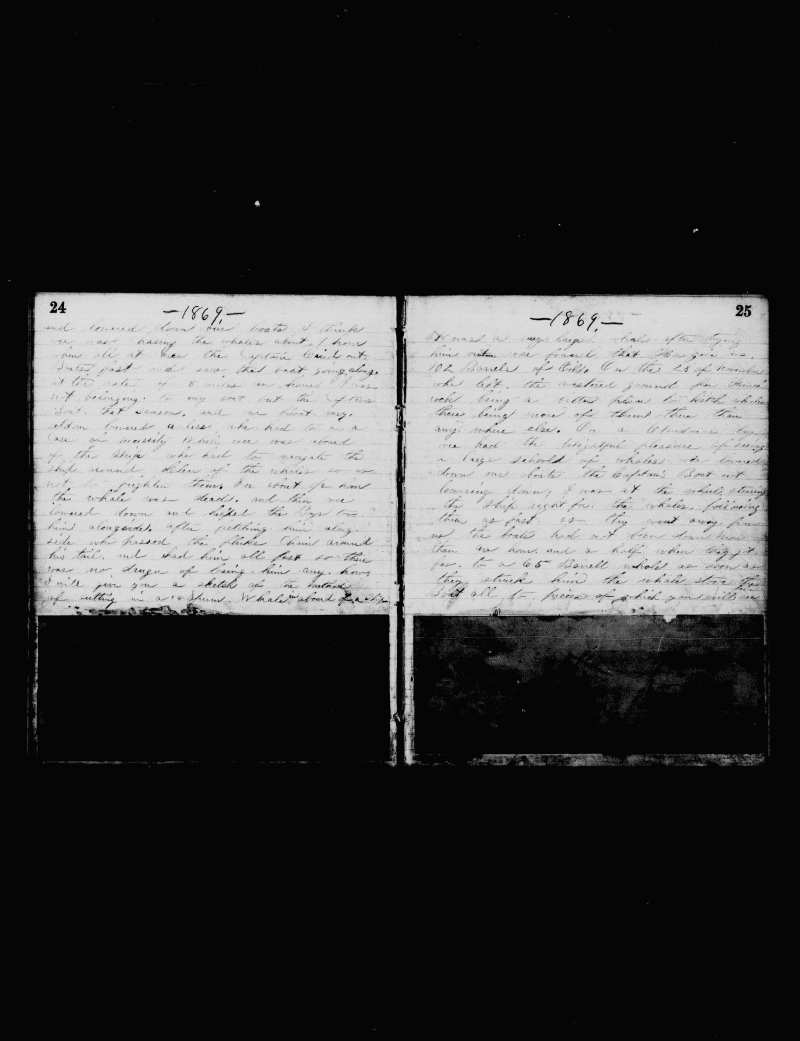 24
—1869,—
and lowered down our boats I think
we was chasing the whales about 1 hour
when all at once the Captain Cried out
Boats fast and saw that boat going along
at the rate of 8 miles an hour I was
not belonging to any boat but the
Boat that season, and we didn't very
seldom lowered unless we had to in a
Case of
of the Ship we had to navigate the
ship around clear of the whales so as
not to frighten them. In about ½ an hour
the whale was dead, and then we
lowered down and helped the Boys tow
him alongside, after getting him along
side we passed the fluke chain around
his tail, and had him all fast so there
was no danger of losing him any how
I will give you a sketch of the method
of cutting in a Sperm Whale on aboard of a Ship
25
—1869.—
He was a very large whale after trying
him out we found that He give us
102 Barrels of Oil. On the 23 of November
we left the westered ground for
rock being a better place to ketch whales
there being more of them there than
any where else. On a Wednesday
we had the delightful pleasure of seeing
a large school of whales we lowered
down our boats the Captain's Boat not
lowering down, I was at the wheel steering
the Ship right for the whales following
them as fast as they went away from
us the boats had not been down more
than an hour and a half when they got
fas. to a 65 Barrell whale as soon as
they struck him the whale stove the
Boat all to pieces of which you will see